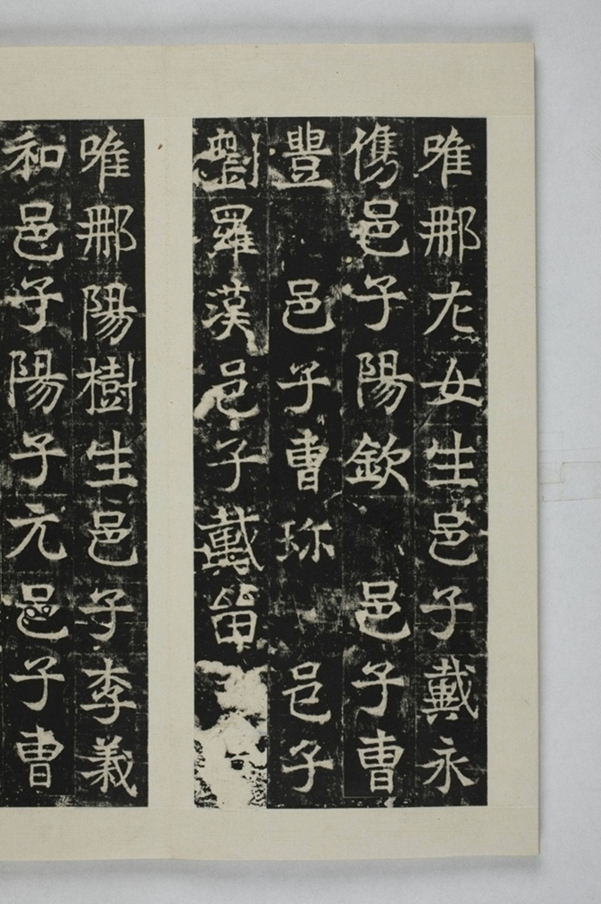 唯那尢女生邑子戴永
儁邑子陽欽邑子曹
豐邑子曹珎邑子
劉羅漢邑子戴留
唯那陽樹生邑子李義
和邑子陽子元邑子曹